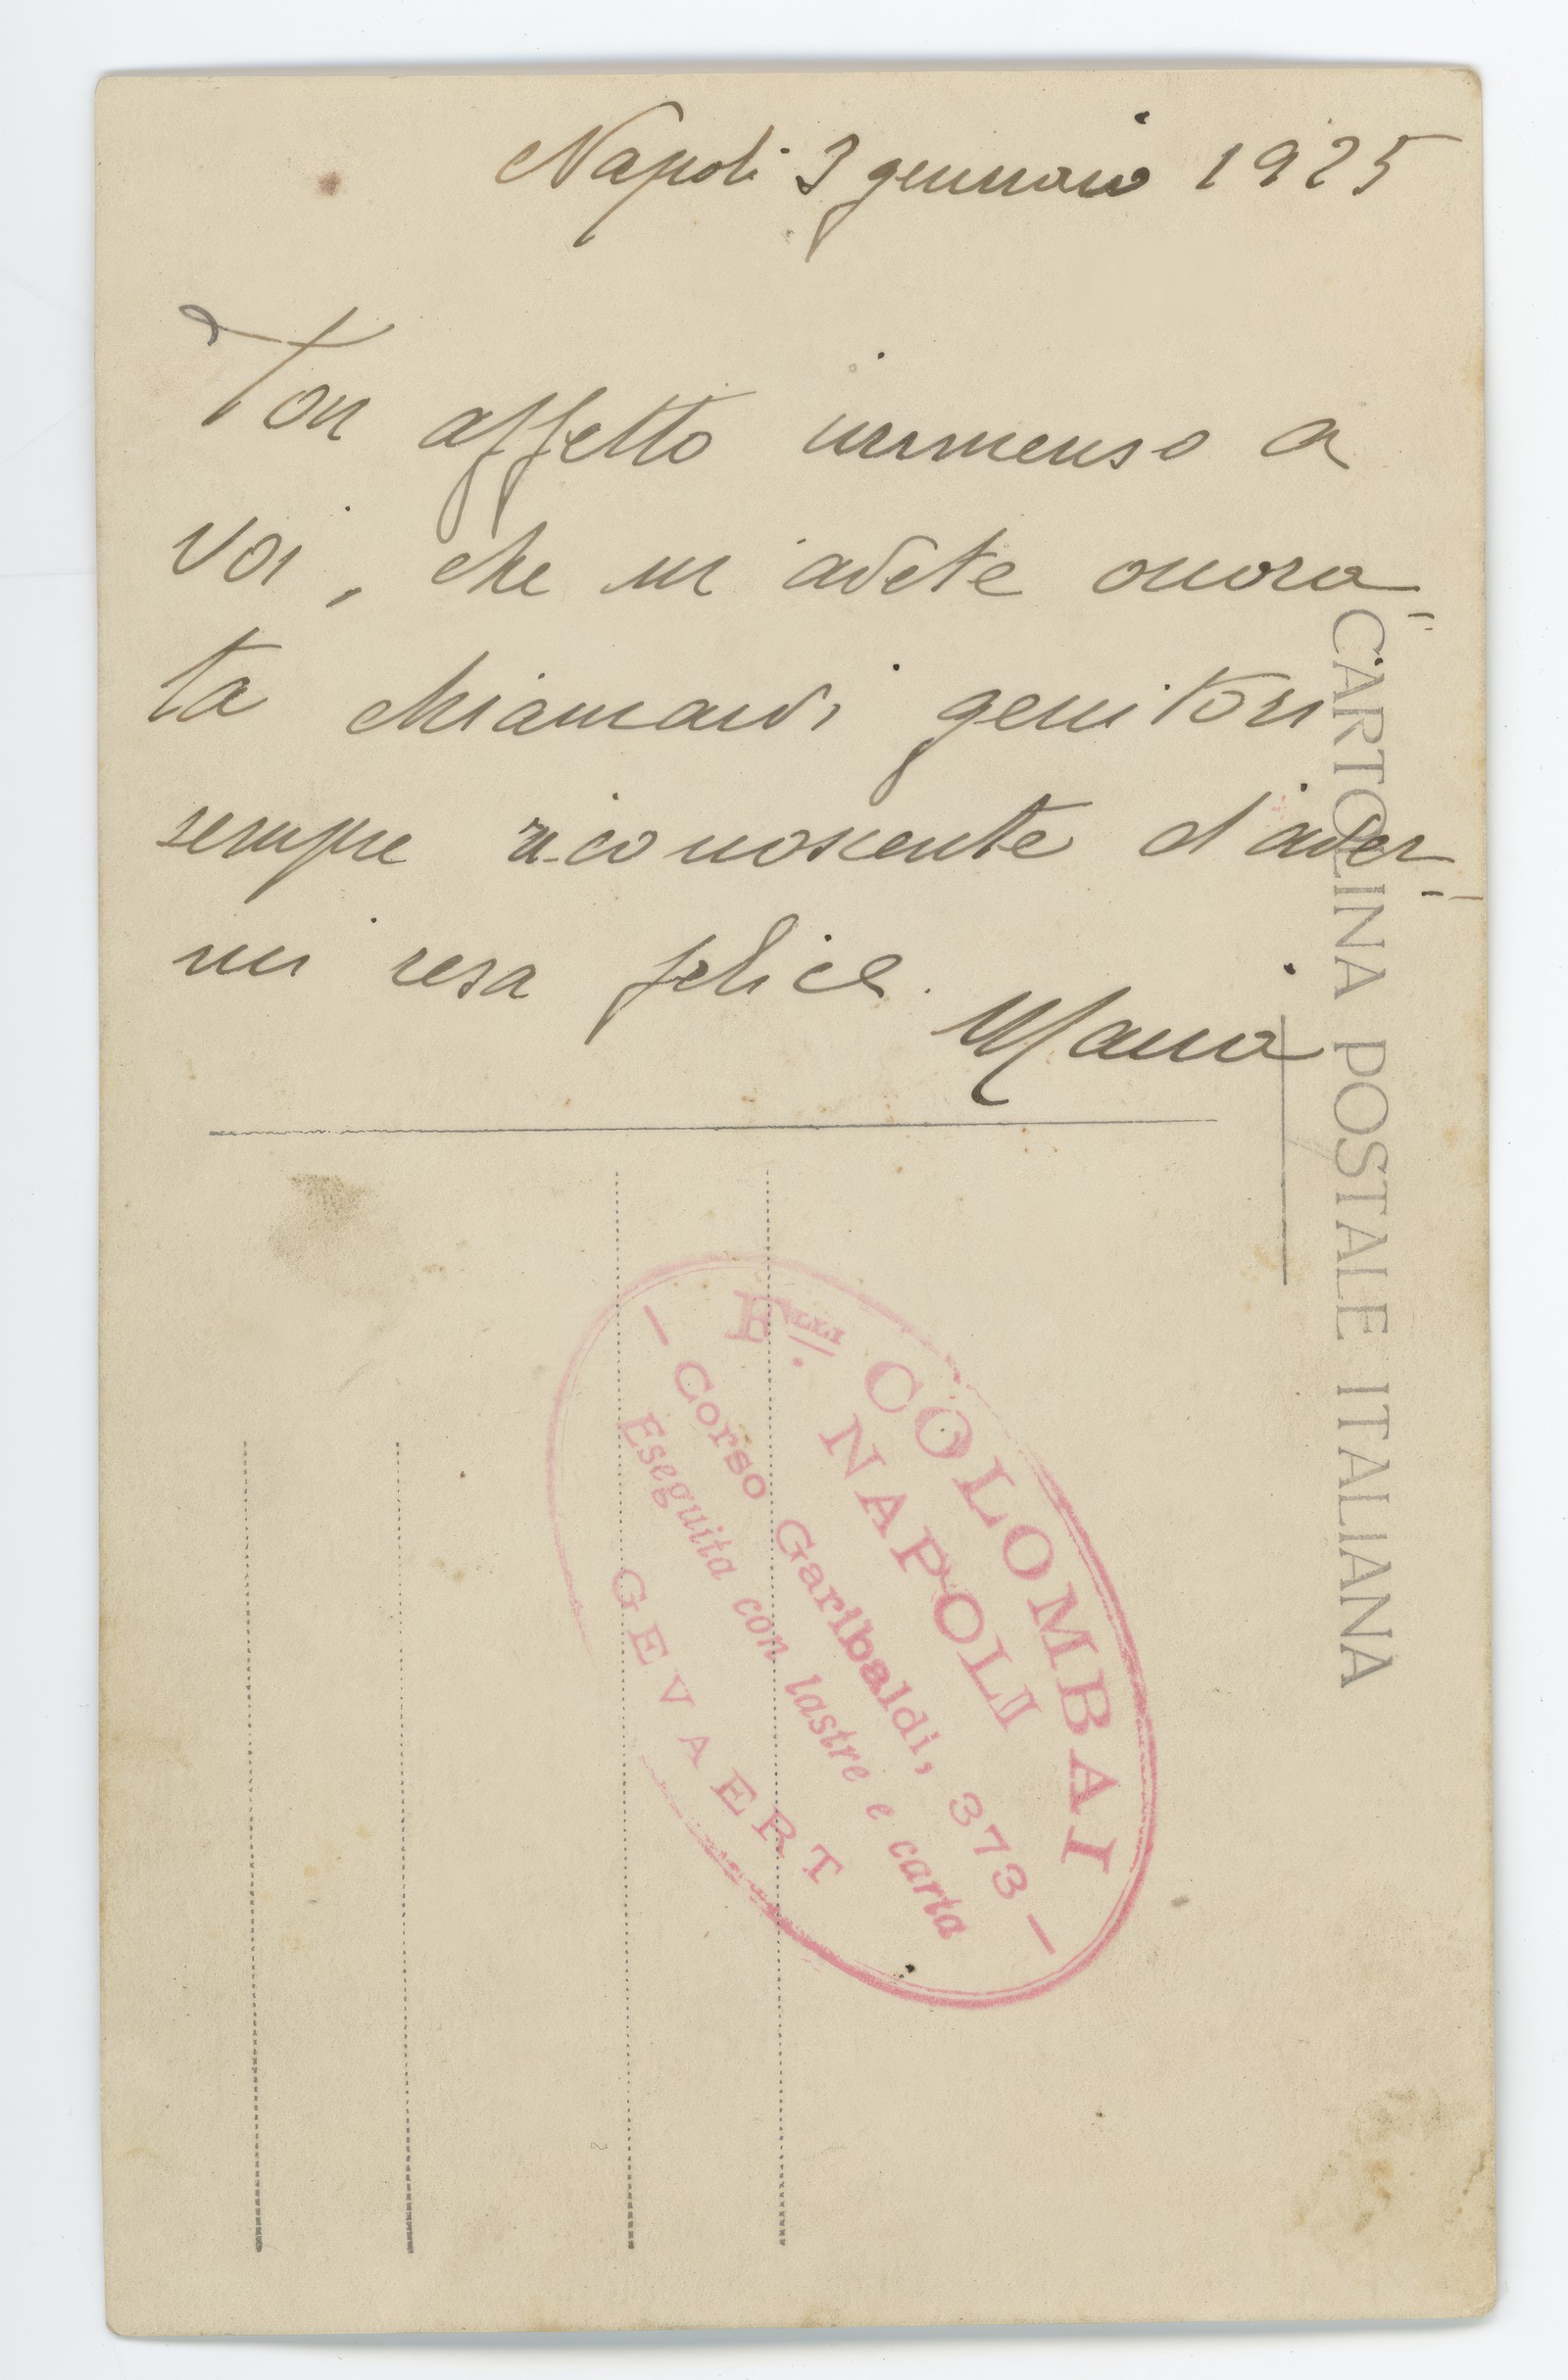 Napoli 3 gennaio 1925
Con affetto immenso a
voi, che mi avete onora-
ta chiamarvi genitori
sempre riconoscente d'aver-
mi resa felice.
Maria
CARTOLINA POSTALE ITALIANA
F.lli COLOMBAI
NAPOLI
— Corso Garibaldi, 373 —
Eseguita con lastre e carta
GEVAERT